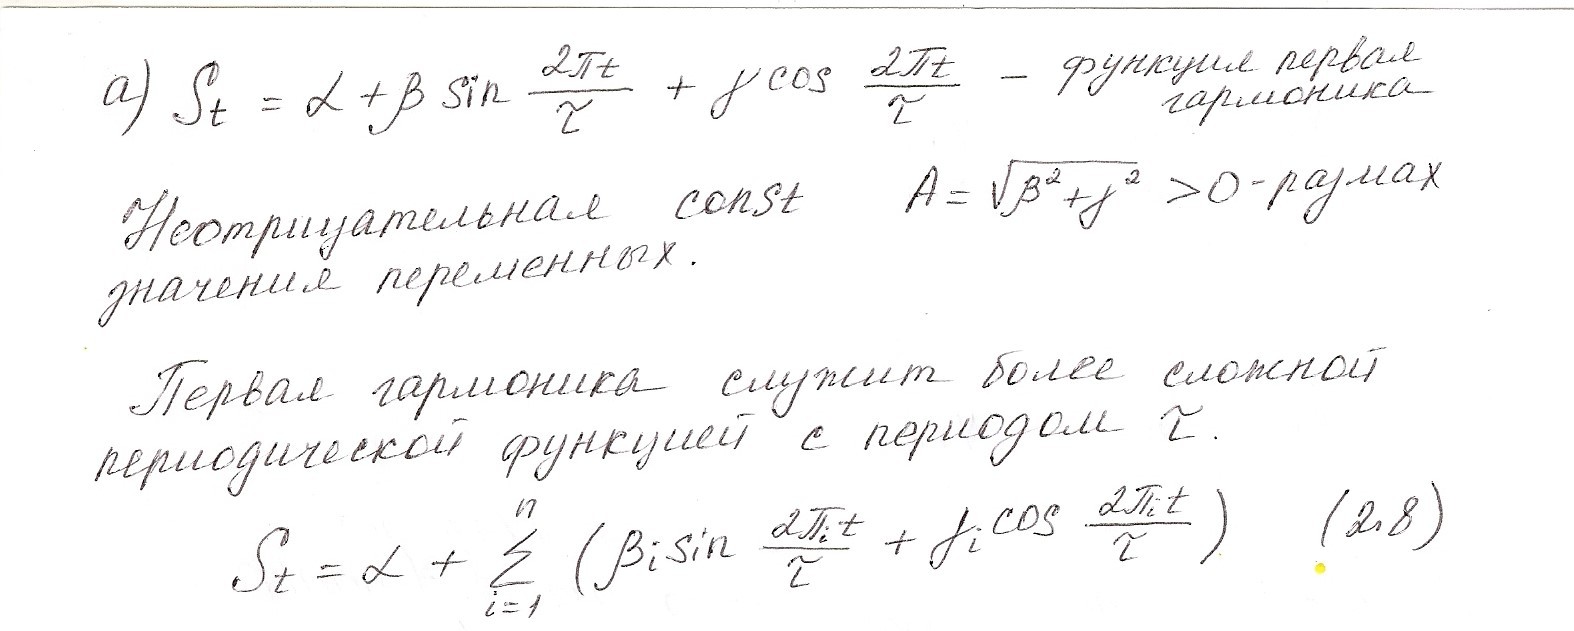 а) S_t = α + β sin 2πt/τ + γ cos 2πt/τ – функция первая
гармоника
Неотрицательная const A = √(β² + γ²) > 0 - размах
значения переменных.
Первая гармоника служит более сложной
периодической функцией с периодом τ.
S_t = α + Σ_{i=1}^{n} (β_i sin 2π_i t/τ + γ_i cos 2π_i t/τ) (2.8)